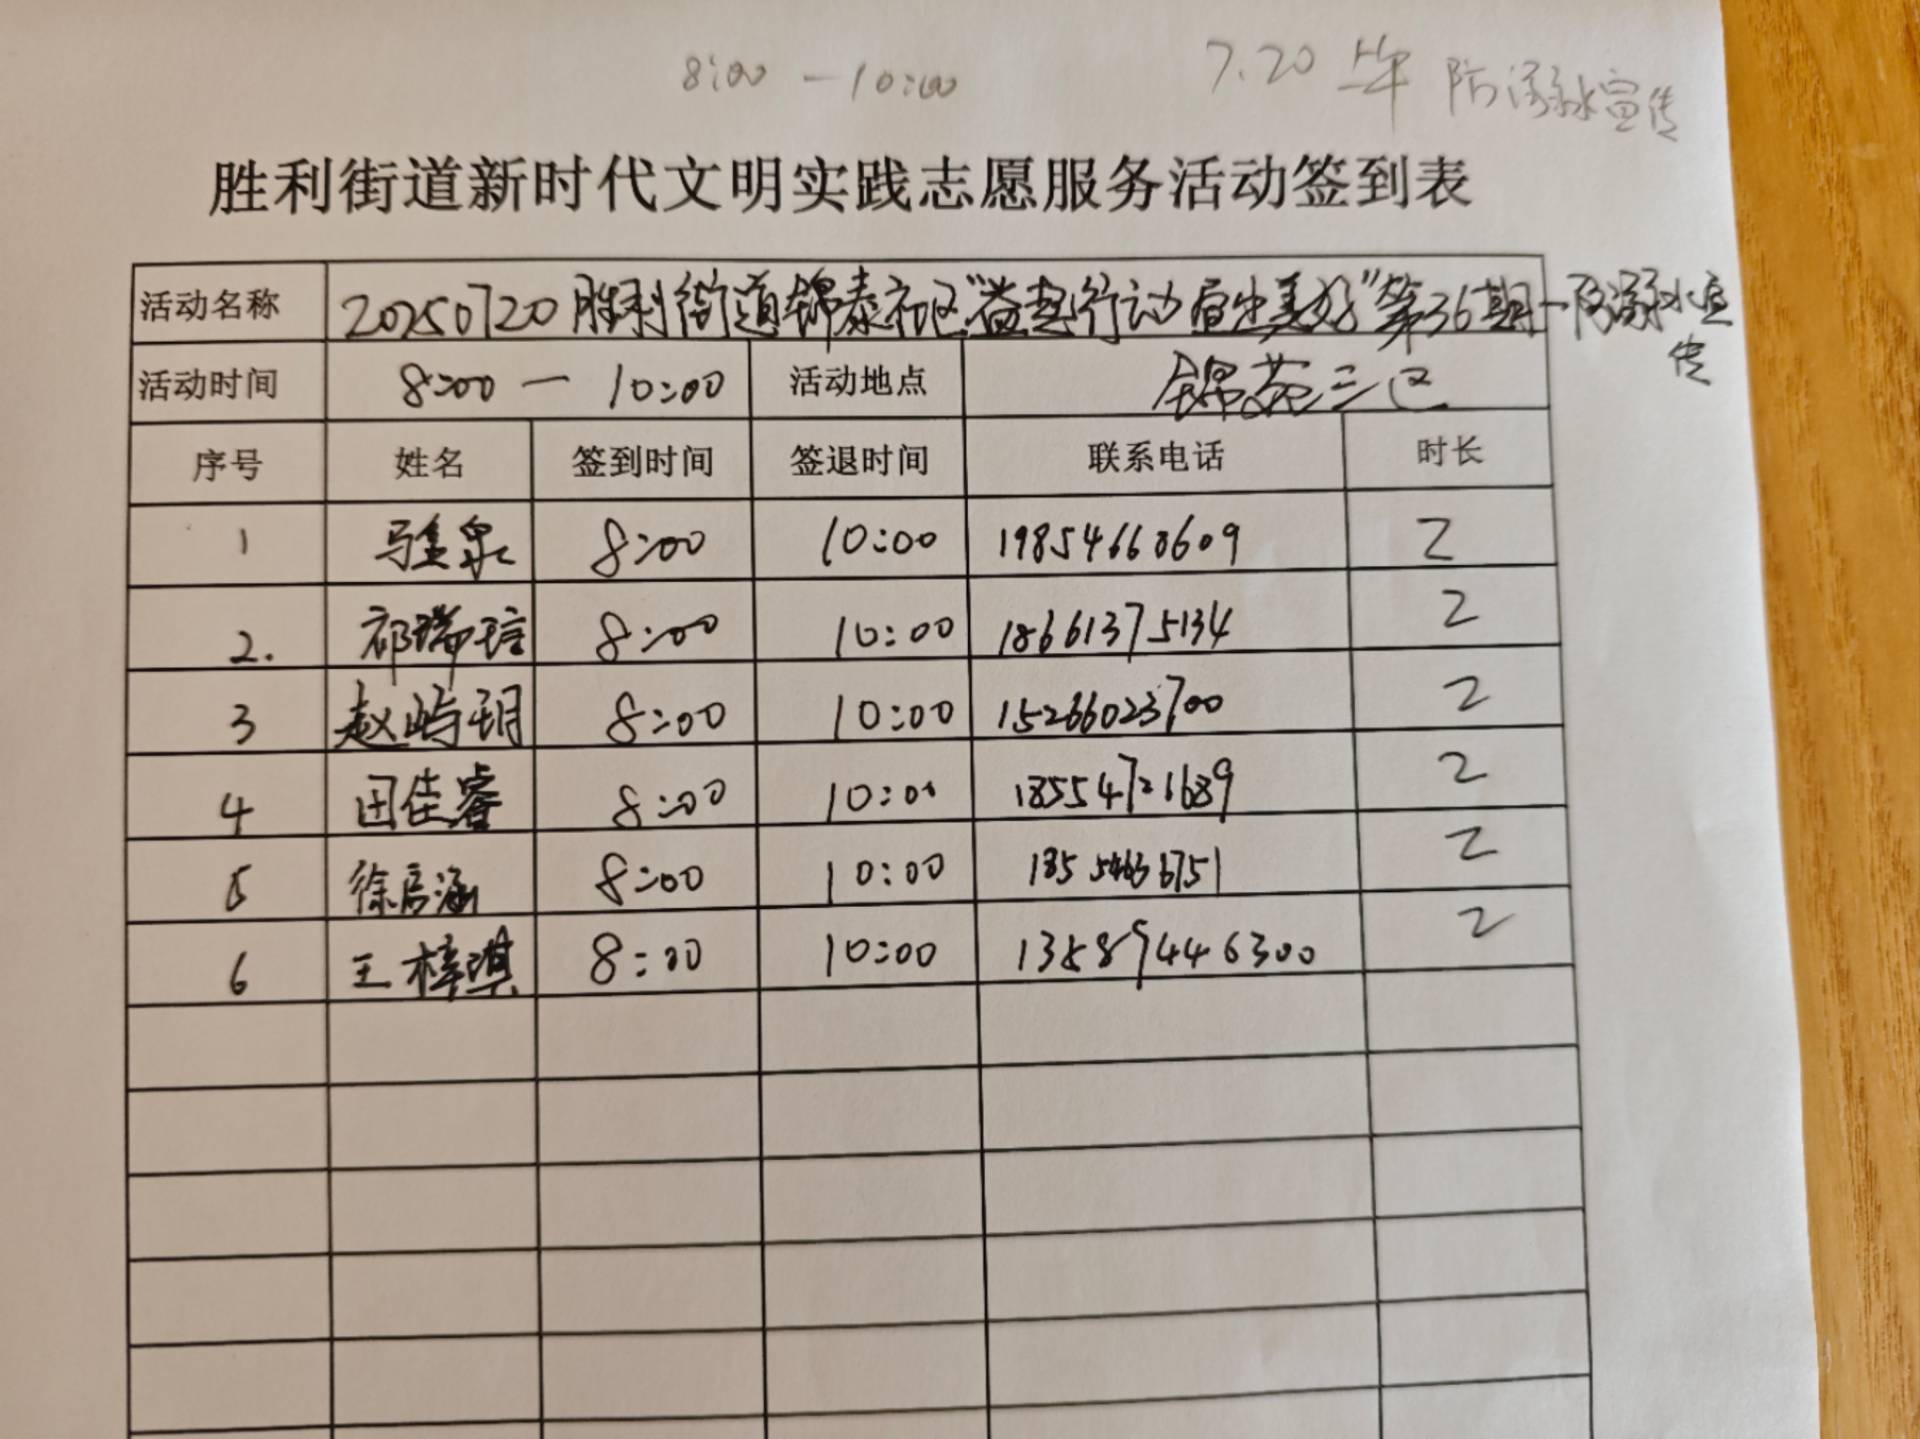 8:00 — 10:00 7.20 上午 防溺水宣传
胜利街道新时代文明实践志愿服务活动签到表
活动名称 20250720胜利街道锦泰社区"益起行动 看出美好"第36期—防溺水宣
传
活动时间 8:00 — 10:00 活动地点 锦苑三区
序号 姓名 签到时间 签退时间 联系电话 时长
1 马金泉 8:00 10:00 19854660609 2
2. 祁瑞瑄 8:00 10:00 18661375134 2
3 赵屿玥 8:00 10:00 15266023700 2
4 田佳睿 8:00 10:00 18554721689 2
5 徐启涵 8:00 10:00 2
6 王梓淇 8:00 10:00 13589446300 2